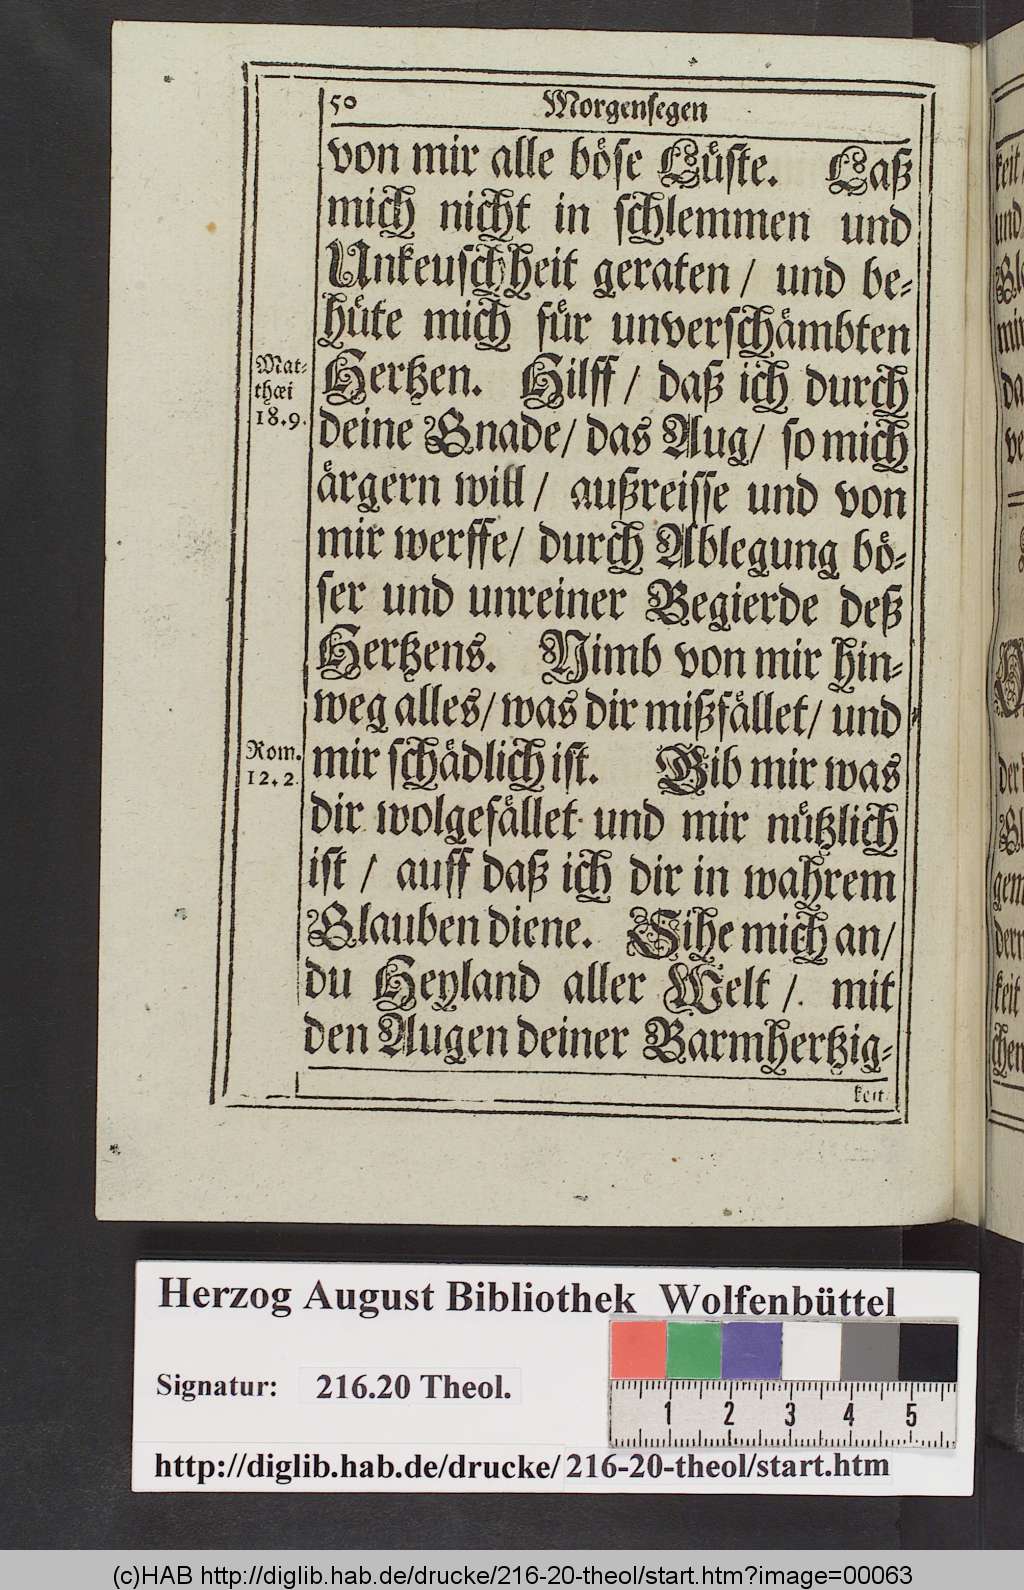 50 Morgensegen
von mir alle böse Lüste. Laß
mich nicht in schlemmen und
Unkeuschheit geraten / und be-
hüte mich für unverschämbten
Hertzen. Hilff / daß ich durch
deine Gnade / das Aug / so mich
ärgern will / außreisse und von
mir werffe / durch Ablegung bö-
ser und unreiner Begierde deß
Hertzens. Nimb von mir hin-
weg alles / was dir mißfället / und
mir schädlich ist. Gib mir was
dir wolgefället und mir nützlich
ist / auff daß ich dir in wahrem
Glauben diene. Sihe mich an /
du Heyland aller Welt /. mit
den Augen deiner Barmhertzig-
keit
Mat-
thæi
18. 9.
Rom.
12. 2.
keit /
und
min
da
ve
der
gem
dern
keit
chen
Herzog August Bibliothek Wolfenbüttel
Signatur: 216.20 Theol.
1 2 3 4 5
http://diglib.hab.de/drucke/216-20-theol/start.htm
(c)HAB http://diglib.hab.de/drucke/216-20-theol/start.htm?image=00063